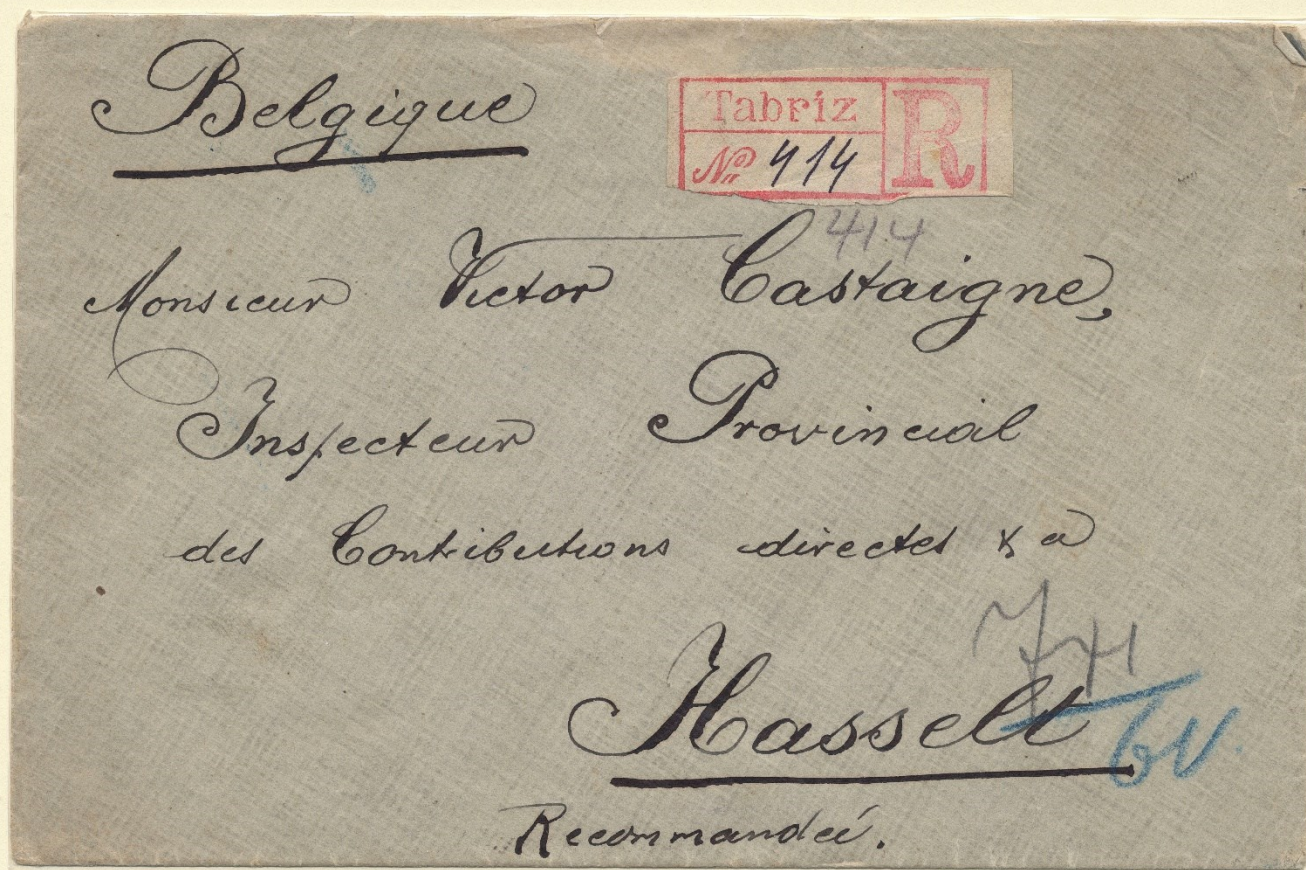 Belgique
Tabriz R
No 414
414
Monsieur Victor Castaigne,
Inspecteur Provincial
des Contributions directes & a
Hasselt
Recommandée.